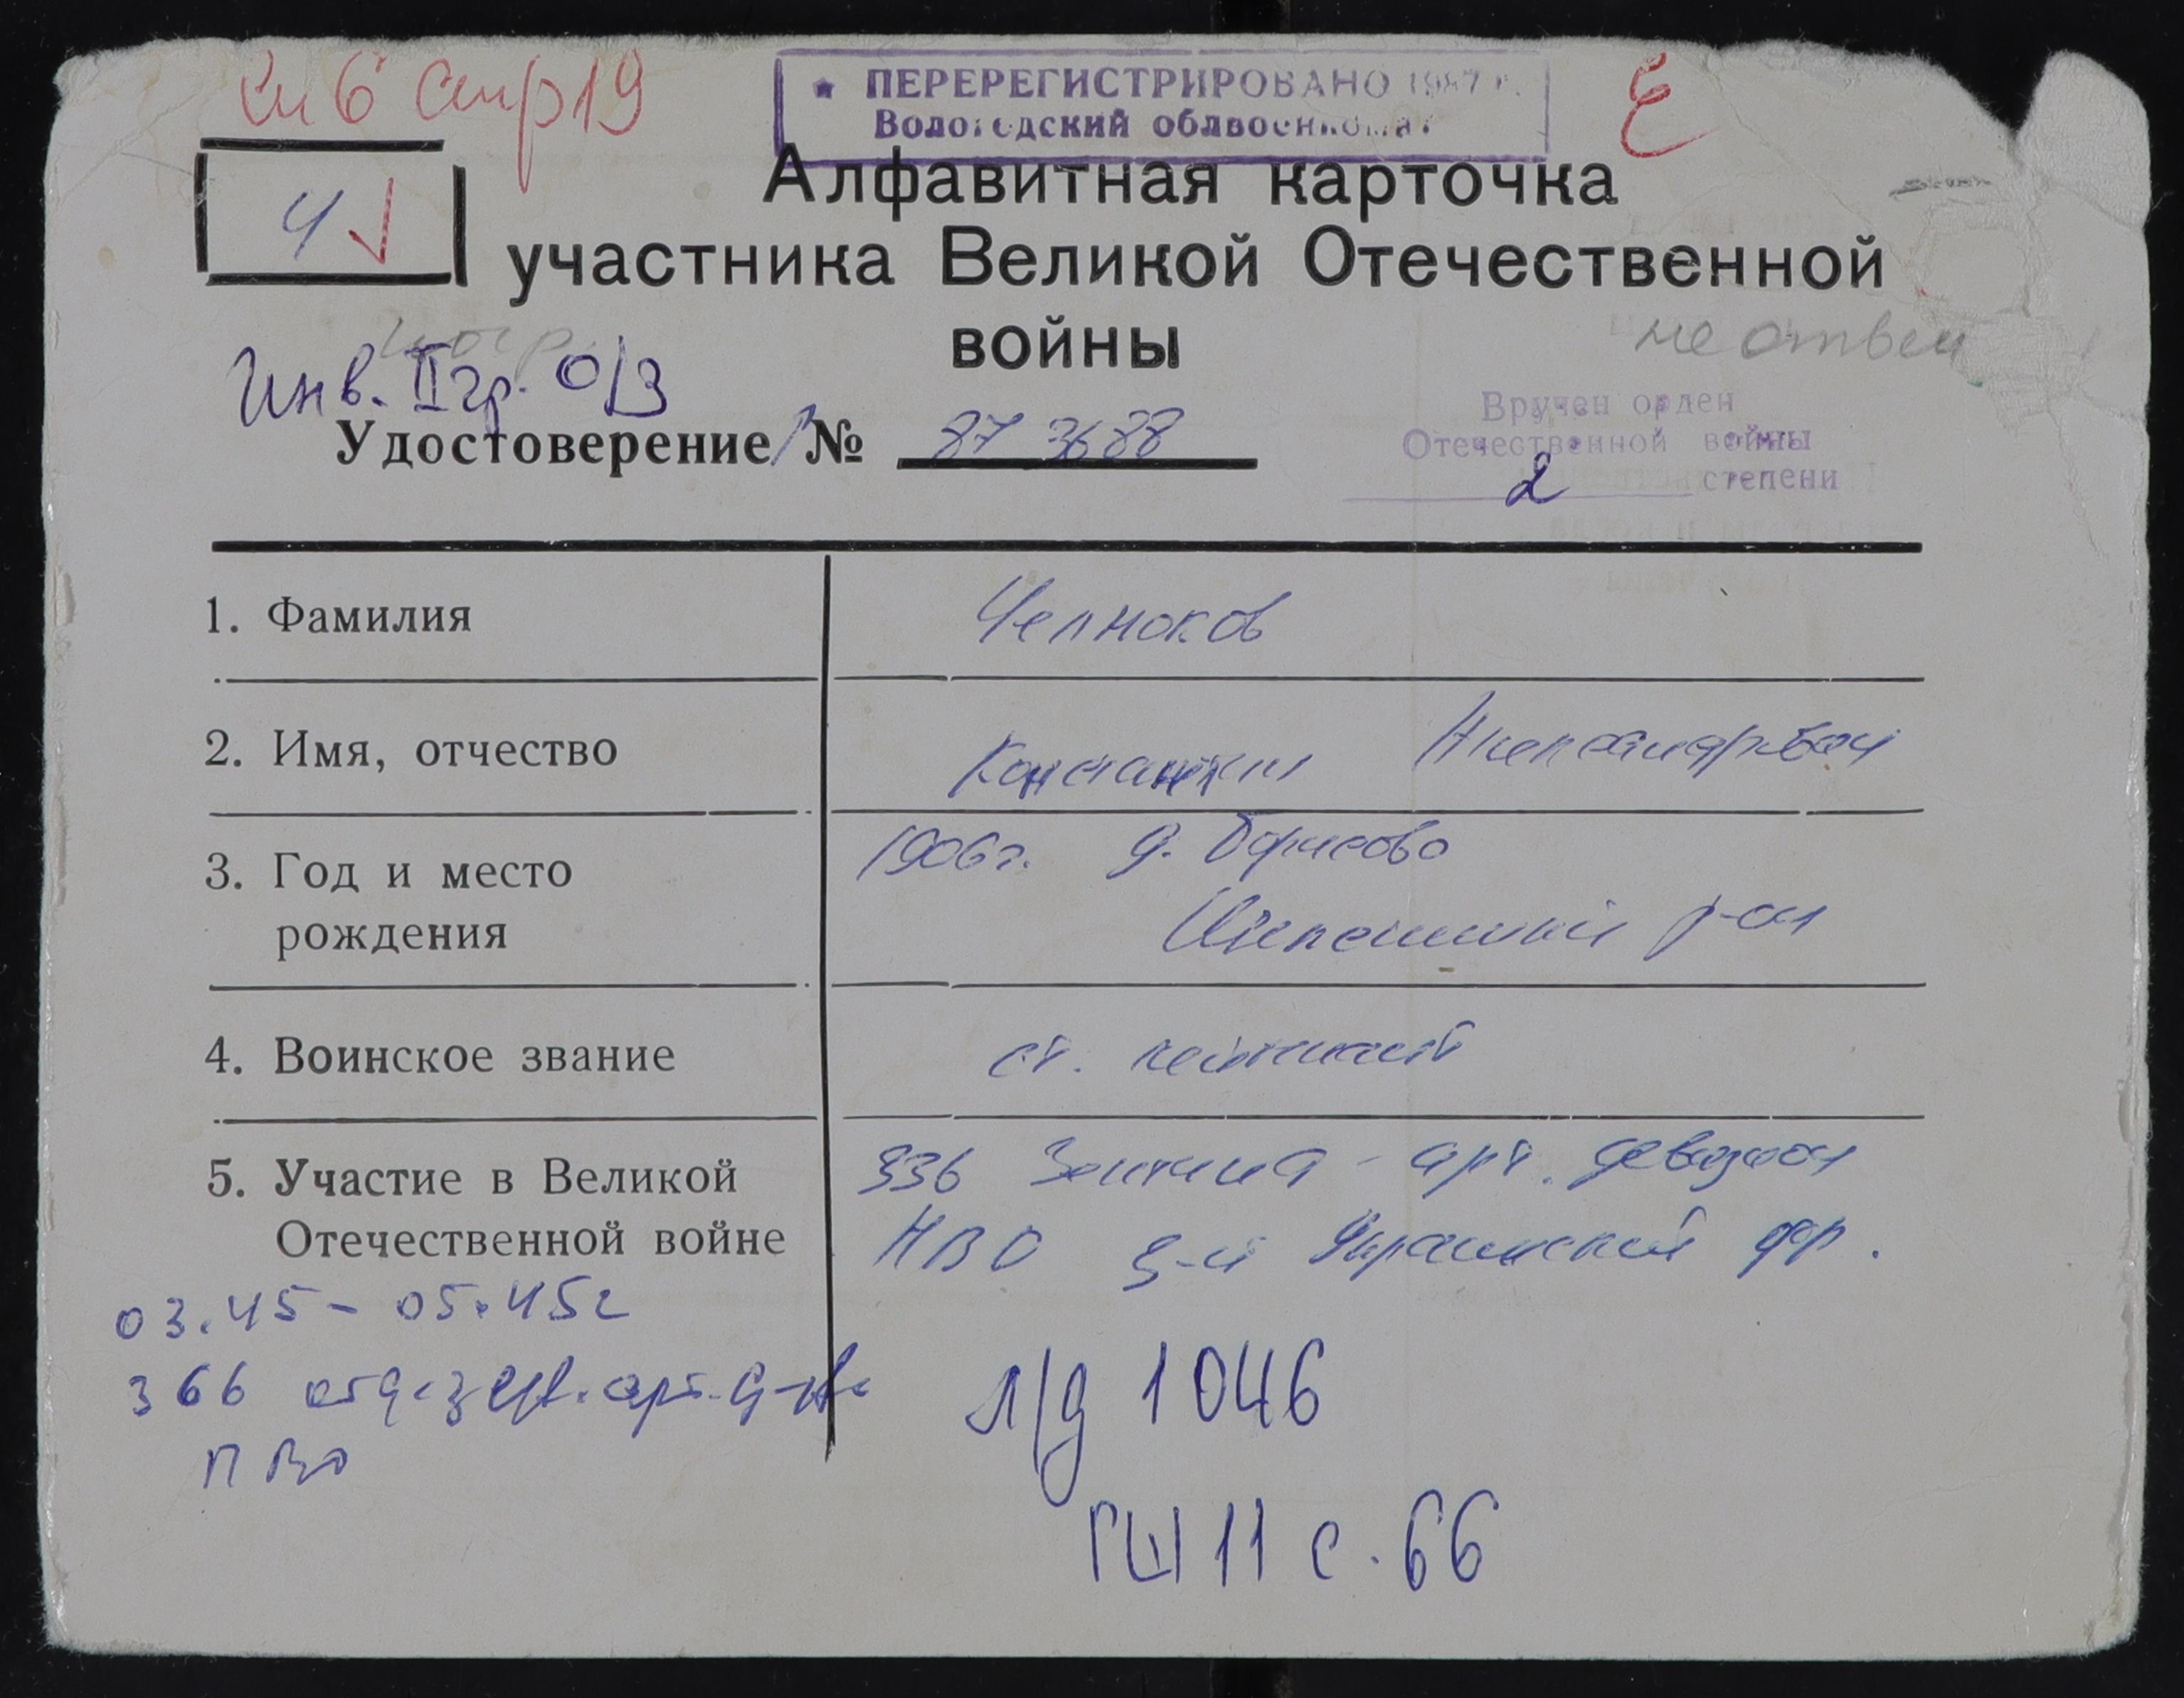 см 6 стр 19
★ ПЕРЕРЕГИСТРИРОВАНО 1987 г.
Вологодский облвоенкомат
Ч
Алфавитная карточка
участника Великой Отечественной
войны
не ответ
Инв. II гр. О/З
Удостоверение № 873688
Вручен орден
Отечественной войны
2 степени
1. Фамилия Челноков
2. Имя, отчество Константин Александрович
3. Год и место 1906г. д. Борисово
рождения р-он
4. Воинское звание ст. лейтенант
5. Участие в Великой 336 Зенитна - арт. девизион
Отечественной войне 3-й Украинский фр.
03.45 - 05.45г
366 отд. зен. арт. д-н
ПВО
л/д 1046
ГШ 11 с. 66